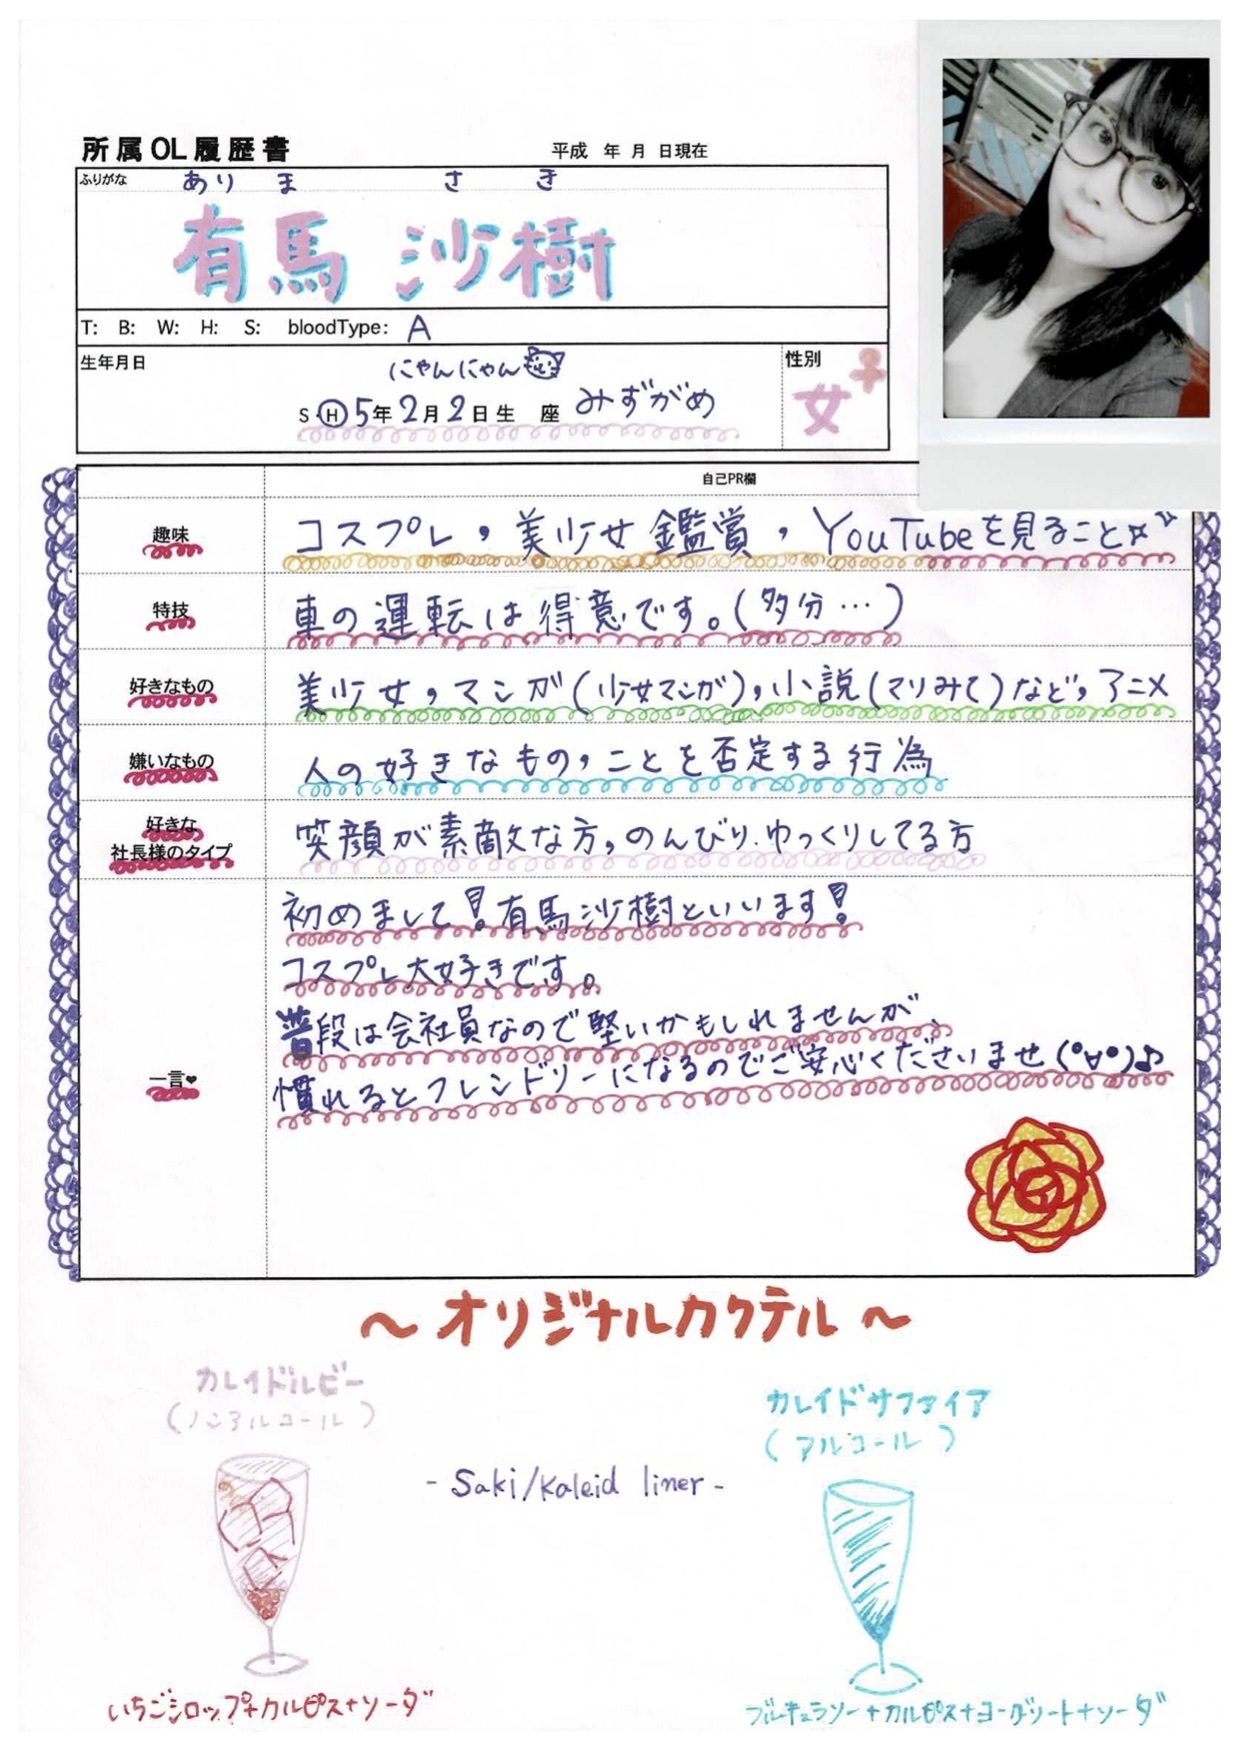 所属OL履歴書
平成 年 月 日現在
ふりがな ありま さき
有馬 沙樹
T: B: W: H: S: bloodType: A
生年月日
にゃんにゃん
S H 5年2月2日生 座 みずがめ
性別
女
自己PR欄
趣味
コスプレ,美少女鑑賞,YouTubeを見ること☆
特技
車の運転は得意です。(多分…)
好きなもの
美少女,マンガ(少女マンガ),小説(マリみて)など,アニメ
嫌いなもの
人の好きなもの,ことを否定する行為
好きな
社長様のタイプ
笑顔が素敵な方,のんびり.ゆっくりしてる方
一言❤
初めまして!有馬沙樹といいます!
コスプレ大好きです。
普段は会社員なので堅いかもしれませんが、
慣れるとフレンドリーになるのでご安心くださいませ(°∀°)♪
～オリジナルカクテル～
カレイドルビー
(ノンアルコール)
カレイドサファイア
(アルコール)
- Saki/kaleid liner -
いちごシロップ+カルピス+ソーダ
ブルーキュラソー+カルピス+ヨーグリート+ソーダ